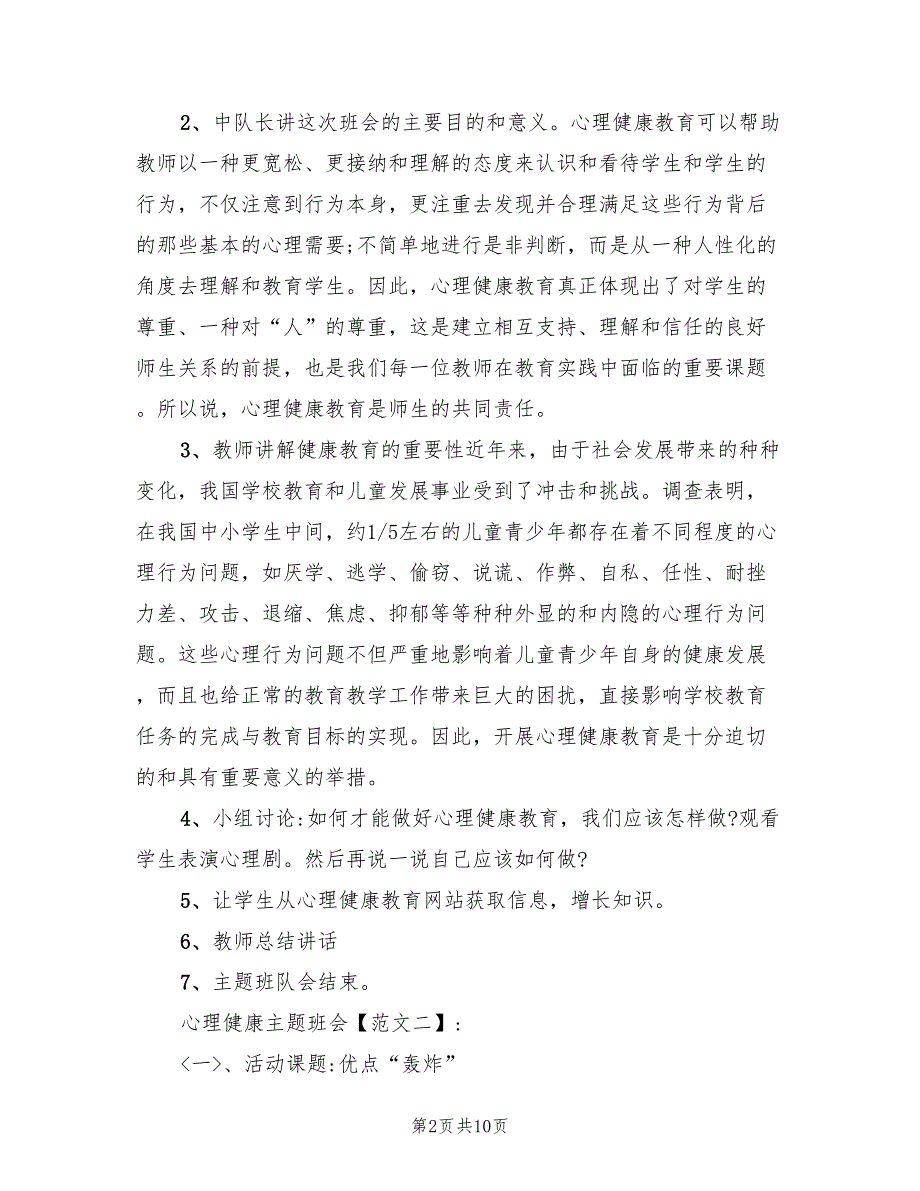 2、中队长讲这次班会的主要目的和意义。心理健康教育可以帮助
教师以一种更宽松、更接纳和理解的态度来认识和看待学生和学生的
行为，不仅注意到行为本身，更注重去发现并合理满足这些行为背后
的那些基本的心理需要;不简单地进行是非判断，而是从一种人性化的
角度去理解和教育学生。因此，心理健康教育真正体现出了对学生的
尊重、一种对“人”的尊重，这是建立相互支持、理解和信任的良好
师生关系的前提，也是我们每一位教师在教育实践中面临的重要课题
。所以说，心理健康教育是师生的共同责任。
3、教师讲解健康教育的重要性近年来，由于社会发展带来的种种
变化，我国学校教育和儿童发展事业受到了冲击和挑战。调查表明，
在我国中小学生中间，约1/5左右的儿童青少年都存在着不同程度的心
理行为问题，如厌学、逃学、偷窃、说谎、作弊、自私、任性、耐挫
力差、攻击、退缩、焦虑、抑郁等等种种外显的和内隐的心理行为问
题。这些心理行为问题不但严重地影响着儿童青少年自身的健康发展
，而且也给正常的教育教学工作带来巨大的困扰，直接影响学校教育
任务的完成与教育目标的实现。因此，开展心理健康教育是十分迫切
的和具有重要意义的举措。
4、小组讨论:如何才能做好心理健康教育，我们应该怎样做?观看
学生表演心理剧。然后再说一说自己应该如何做?
5、让学生从心理健康教育网站获取信息，增长知识。
6、教师总结讲话
7、主题班队会结束。
心理健康主题班会【范文二】:
<一>、活动课题:优点“轰炸”
第2页共10页